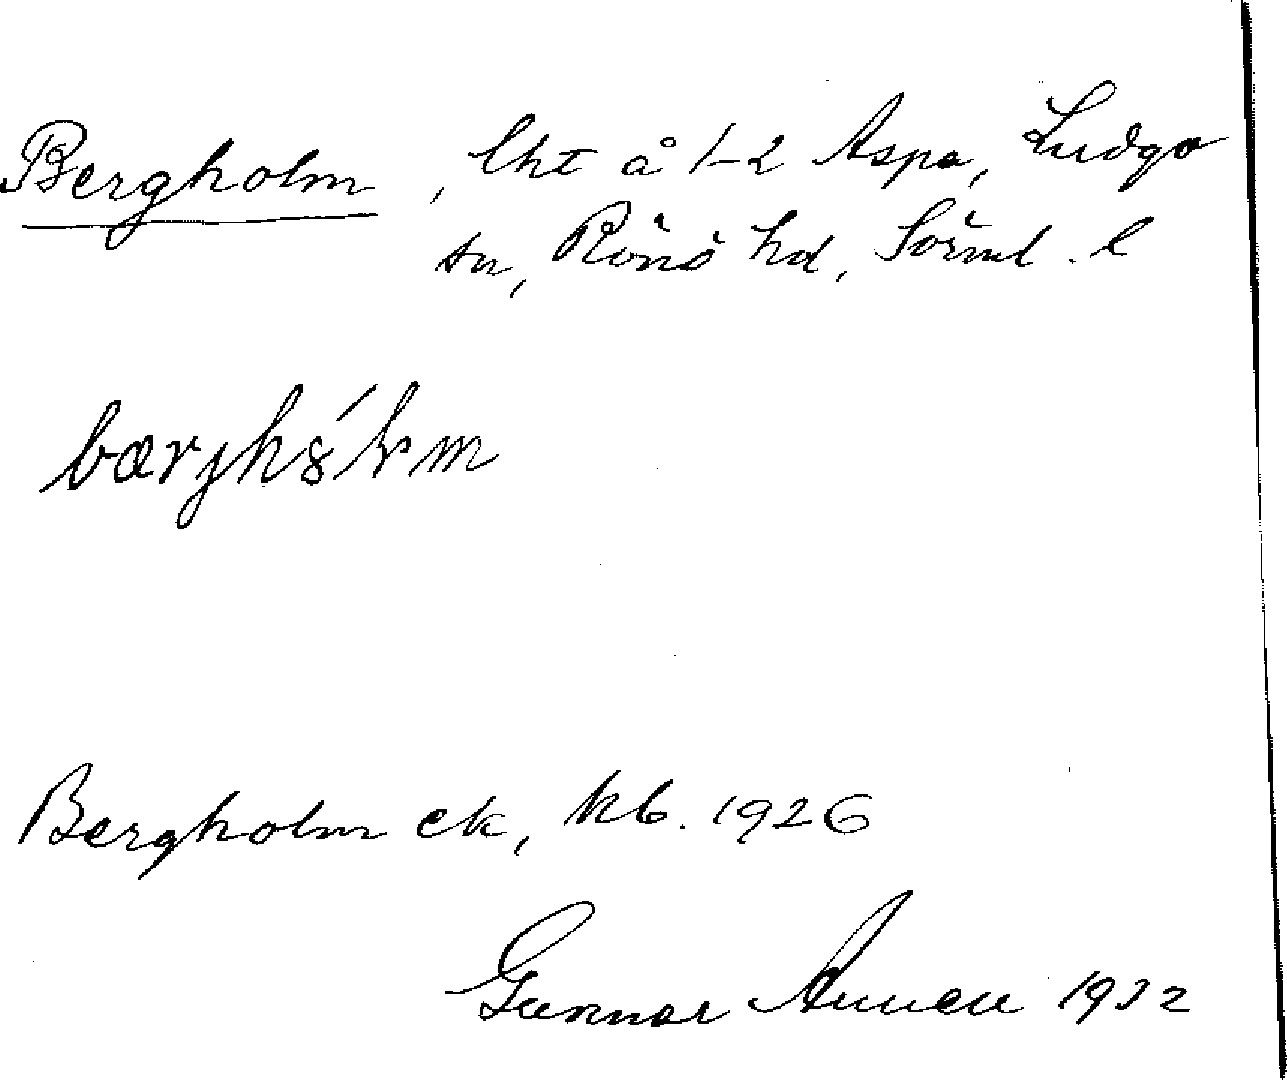 Bergholm, lht å 1-2 Aspa, Ludgo
sn, Rönö hd, Sörml. l
Bergholm ek, kb. 1926
Gunnar Annell 1932